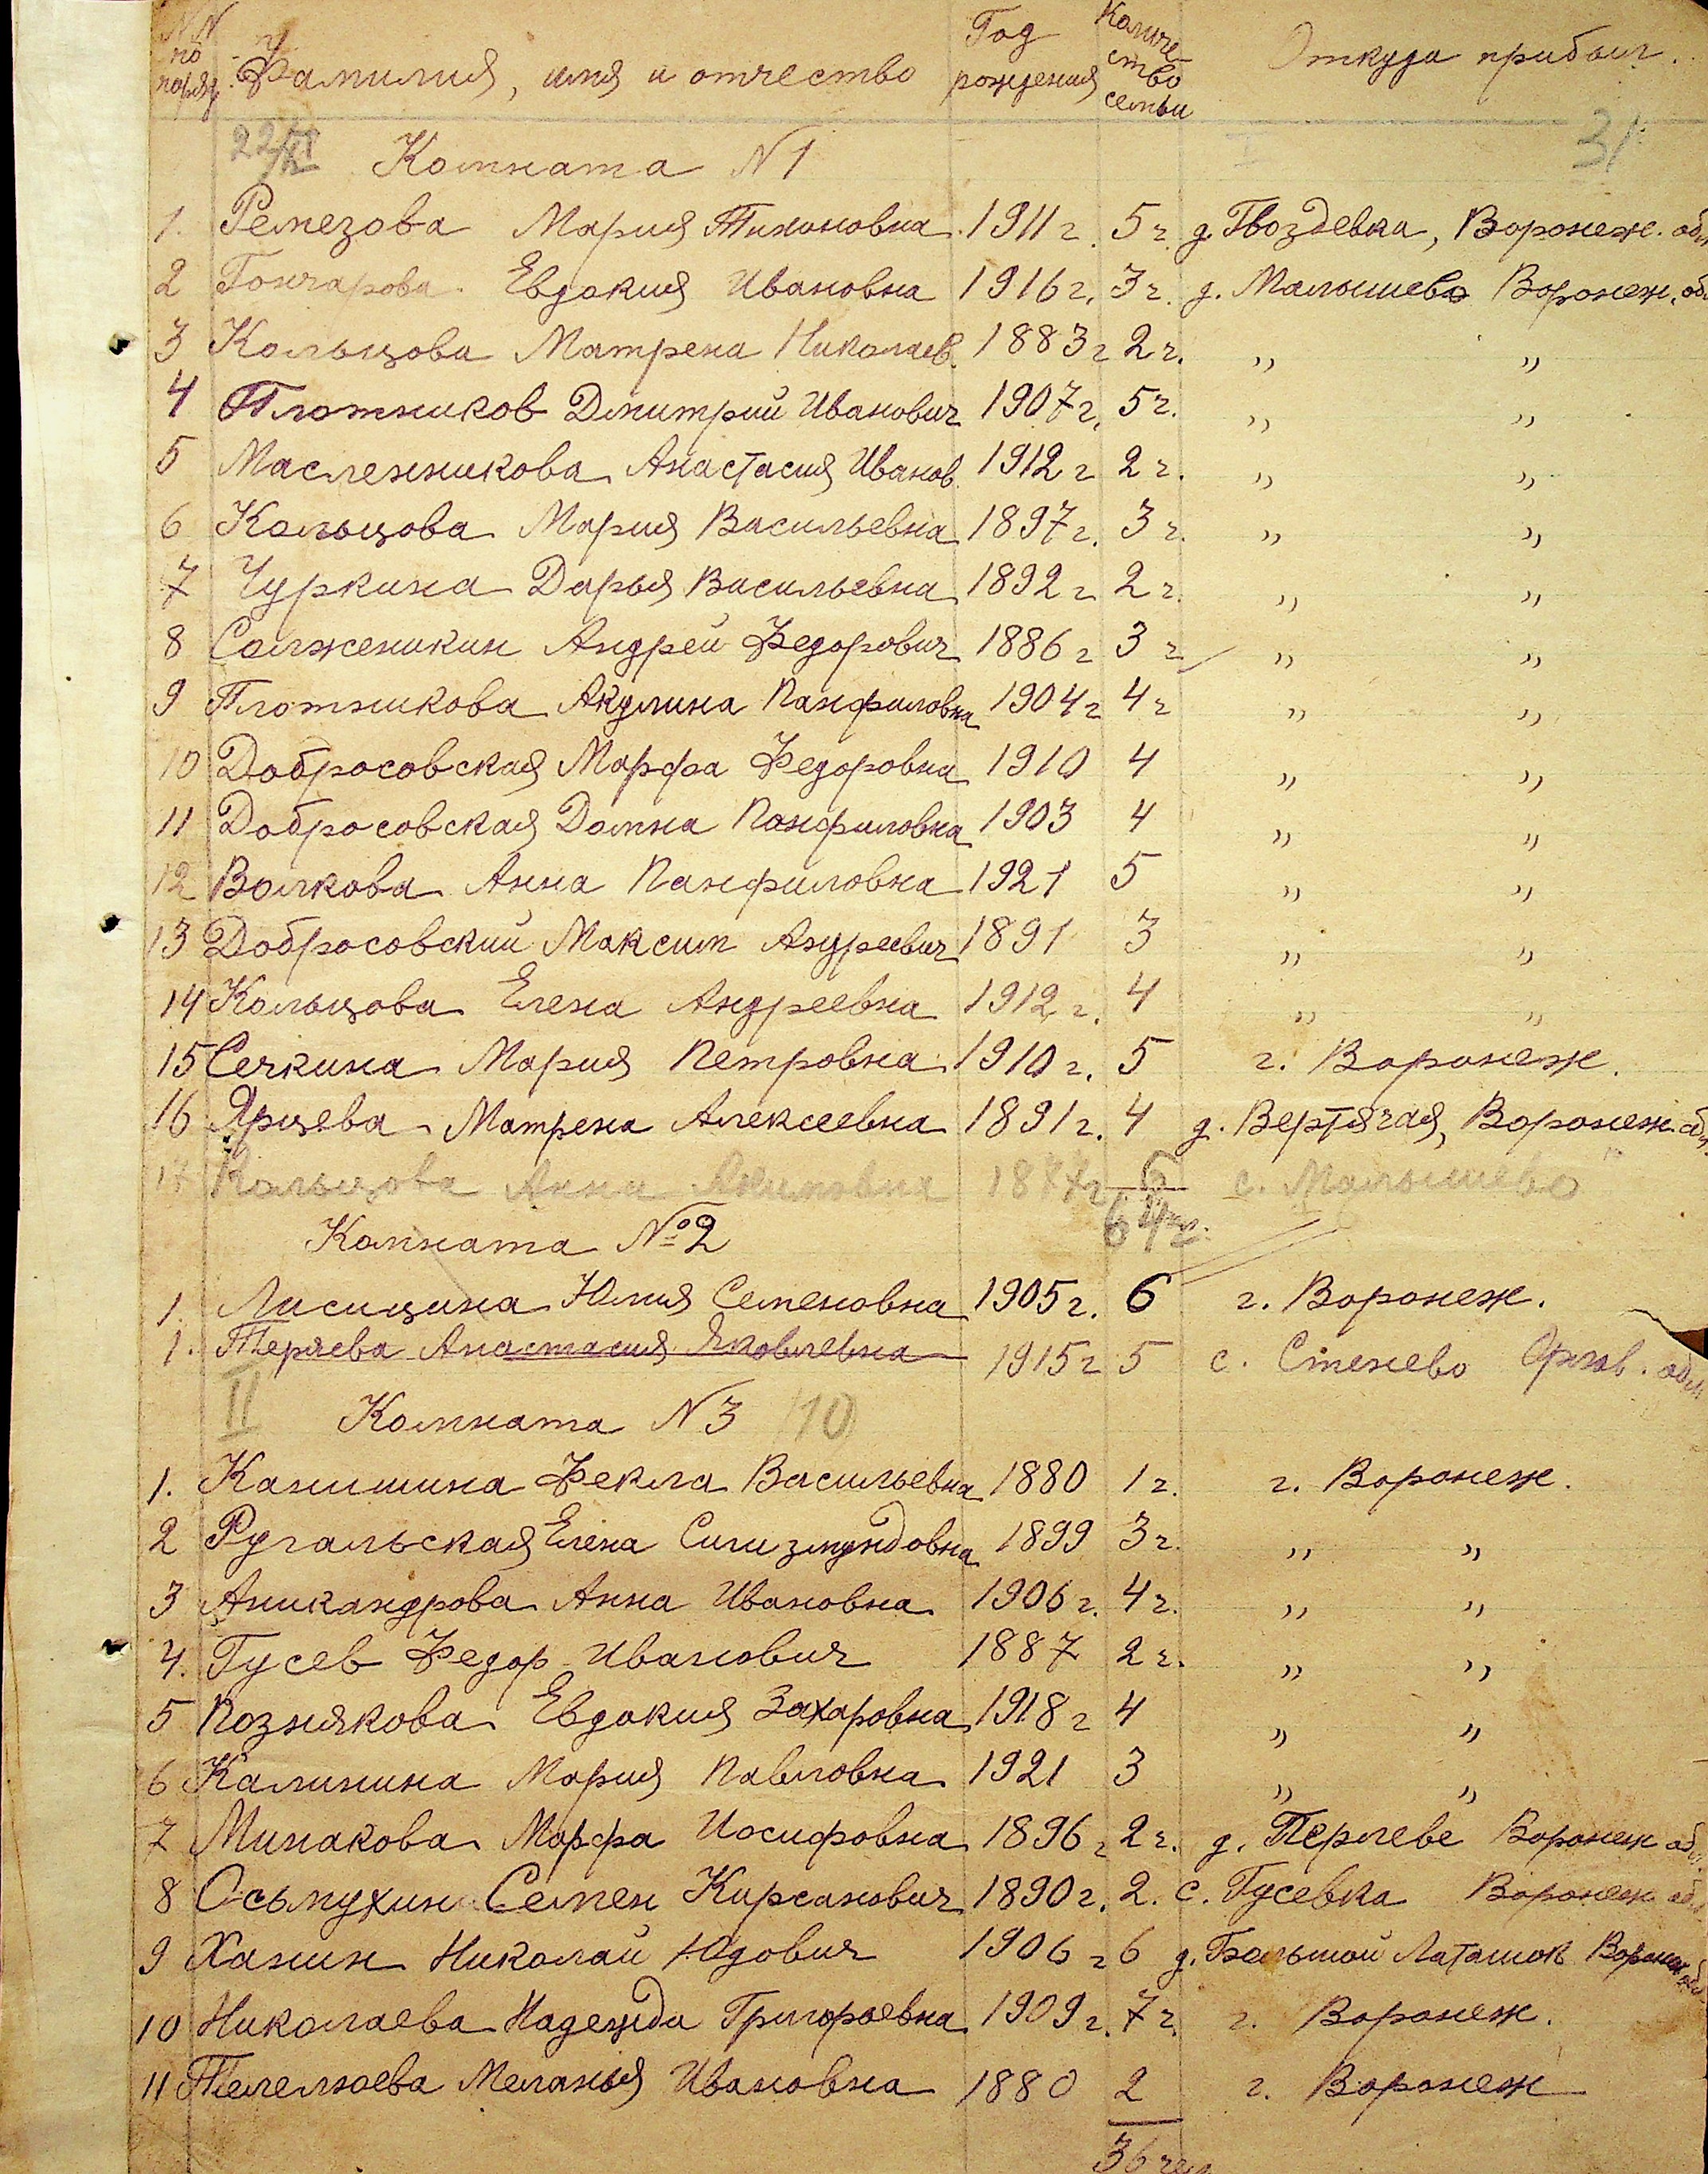 NN по поряд. Фамилия, имя и отчество Год рождения Количество семьи Откуда прибыл.
31
Комната N 1
1. Ремезова Мария Тихоновна 1911 г. 5 ч. д. Гвоздевка, Воронеж. обл
2 Гончарова Евдокия Ивановна 1916 г. 3 ч. д. Малышево Воронеж. об.
3 Кольцова Матрена Николаев. 1883 г 2 ч. „ „
4 Плотников Дмитрий Иванович 1907 г. 5 ч. „ „
5 Масленникова Анастасия Иванов. 1912 г 2 ч. „ „
6 Кольцова Мария Васильевна 1897 г. 3 ч. „ „
7 Чуркина Дарья Васильевна 1892 г 2 ч. „ „
8 Солженикин Андрей Федорович 1886 г 3 ч „ „
9 Плотникова Акулина Панфиловна 1904 г 4 ч „ „
10 Добросовская Марфа Федоровна 1910 4 „ „
11 Добросовская Домна Панфиловна 1903 4 „ „
12 Волкова Анна Панфиловна 1921 5 „ „
13 Добросовский Максим Андреевич 1891 3 „ „
14 Кольцова Елена Андреевна 1912 г. 4 „ „
15 Сечкина Мария Петровна 1910 г. 5 г. Воронеж.
16 Ярцева Матрена Алексеевна 1891 г. 4 д. Вертячая, Воронеж. обл.
17 Кольцова Анна Акимовна с. Малышево
64 ч.
Комната № 2
1. Лисицина Юлия Семеновна 1905 г. 6 г. Воронеж.
1. Теряева Анастасия Яковлевна 1915 г 5 с. Стенево Орлов. обл
II Комната N 3 10
1. Канишина Фекла Васильевна 1880 1 ч. г. Воронеж.
2 Ругальская Елена Сигизмундовна 1899 3 ч. „ „
3 Аникандрова Анна Ивановна 1906 г. 4 ч. „ „
4. Гусев Федор Иванович 1887 2 ч. „ „
5 Познякова Евдокия Захаровна 1918 г 4 „ „
6 Калинина Мария Павловна 1921 3 „ „
7 Минакова Марфа Иосифовна 1896 г 2 ч. д. Перлеве Воронеж об
8 Осьмухин Семен Кирсанович 1890 г. 2. с. Гусевка Воронеж об
9 Ханин Николай Юдович 1906 г 6 д. Большой Латашок Воронеж обл
10 Николаева Надежда Григорьевна 1909 г. 7 ч. г. Воронеж.
11 Телелюева Меланья Ивановна 1880 2 г. Воронеж
36 чел